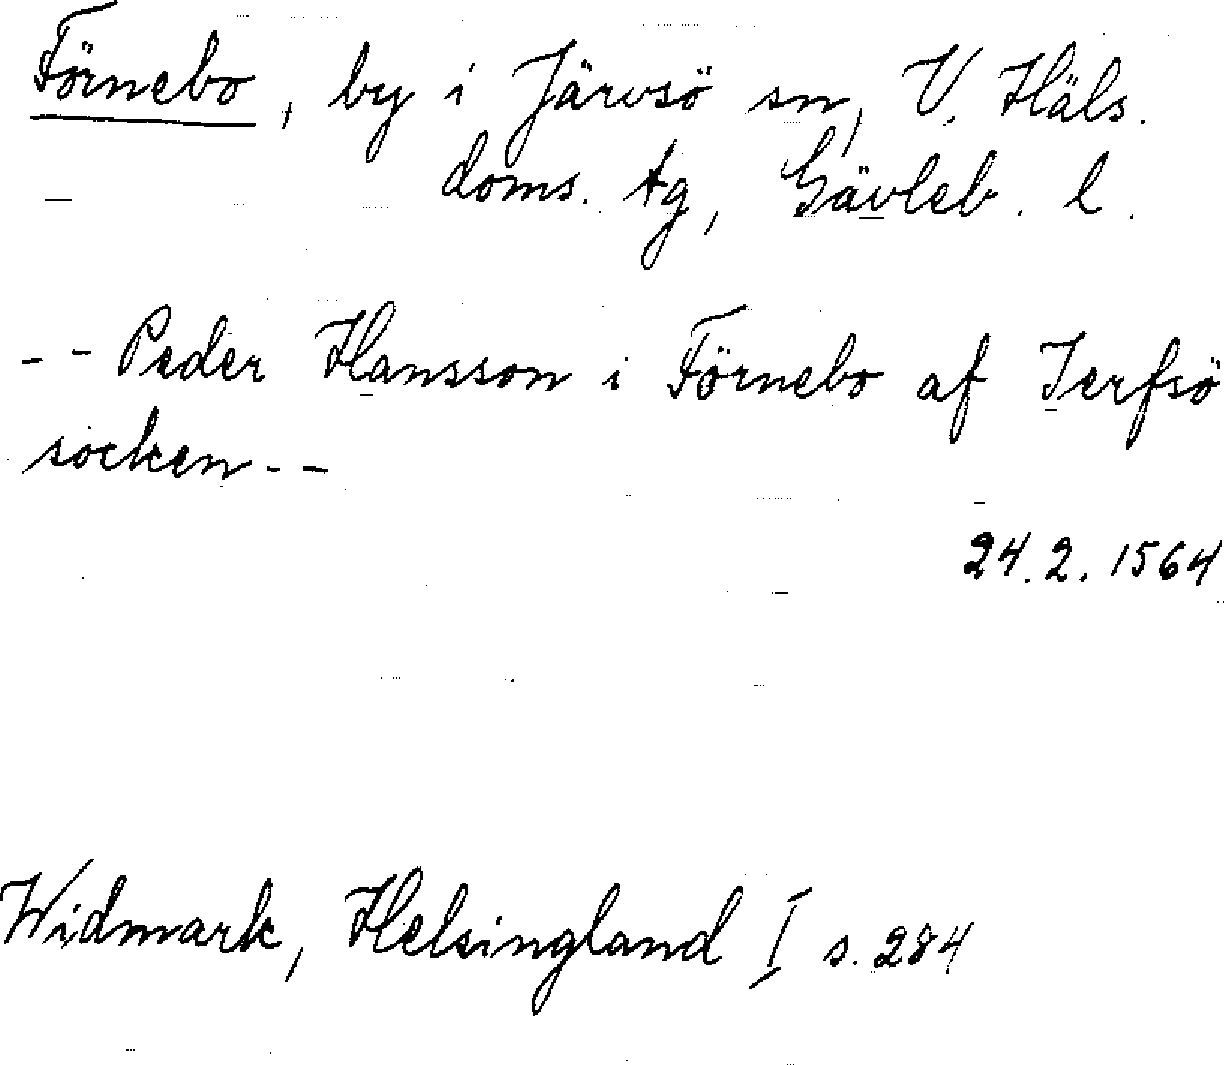 Förnebo, by i Järvsö sn, V. Häls.
doms. tg, Gävleb. l.
-- Peder Hansson i Förnebo af Jerfsö
socken --
24.2.1564
Widmark, Helsingland I s. 284